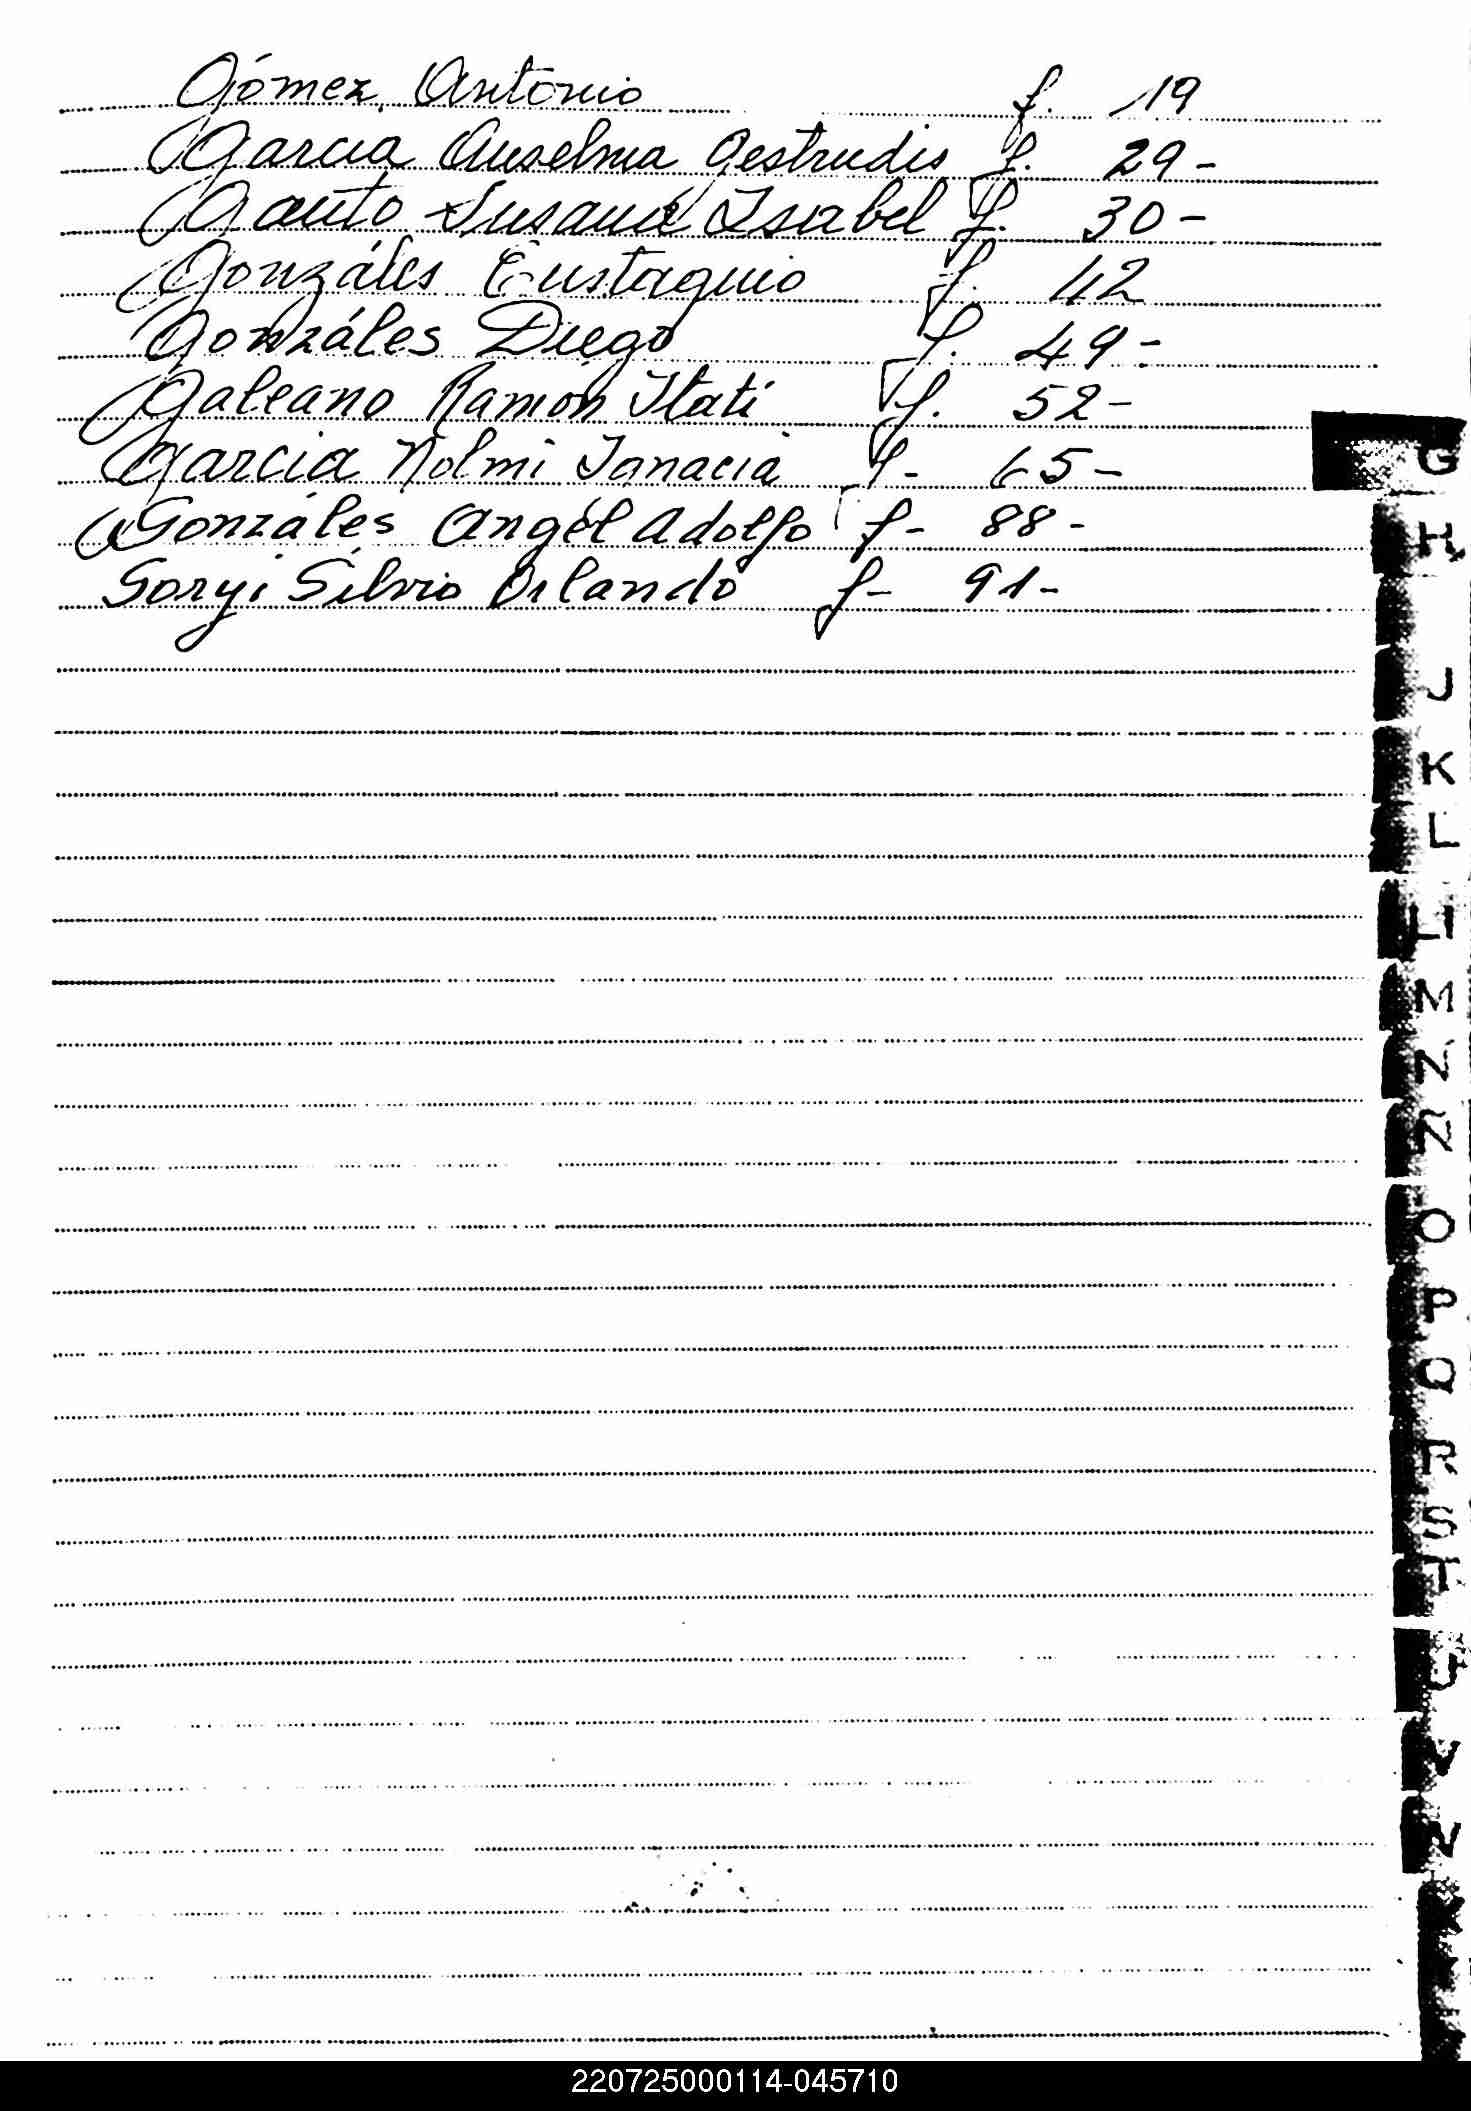 Gómez Antonio f. 19
Garcia Anselma Gestrudis f. 29-
Gauto Susana Isabel f. 30-
Gonzáles Eustaquio f. 42
Gonzáles Diego f. 49-
Galeano Ramón Itati f. 52-
Garcia Nolmi Ignacia f- 65-
Gonzáles Angél Adolfo f- 88-
Silvio Orlando f- 91-
G
H
J
K
L
M
N
Ñ
O
P
Q
R
S
T
U
V
220725000114-045710